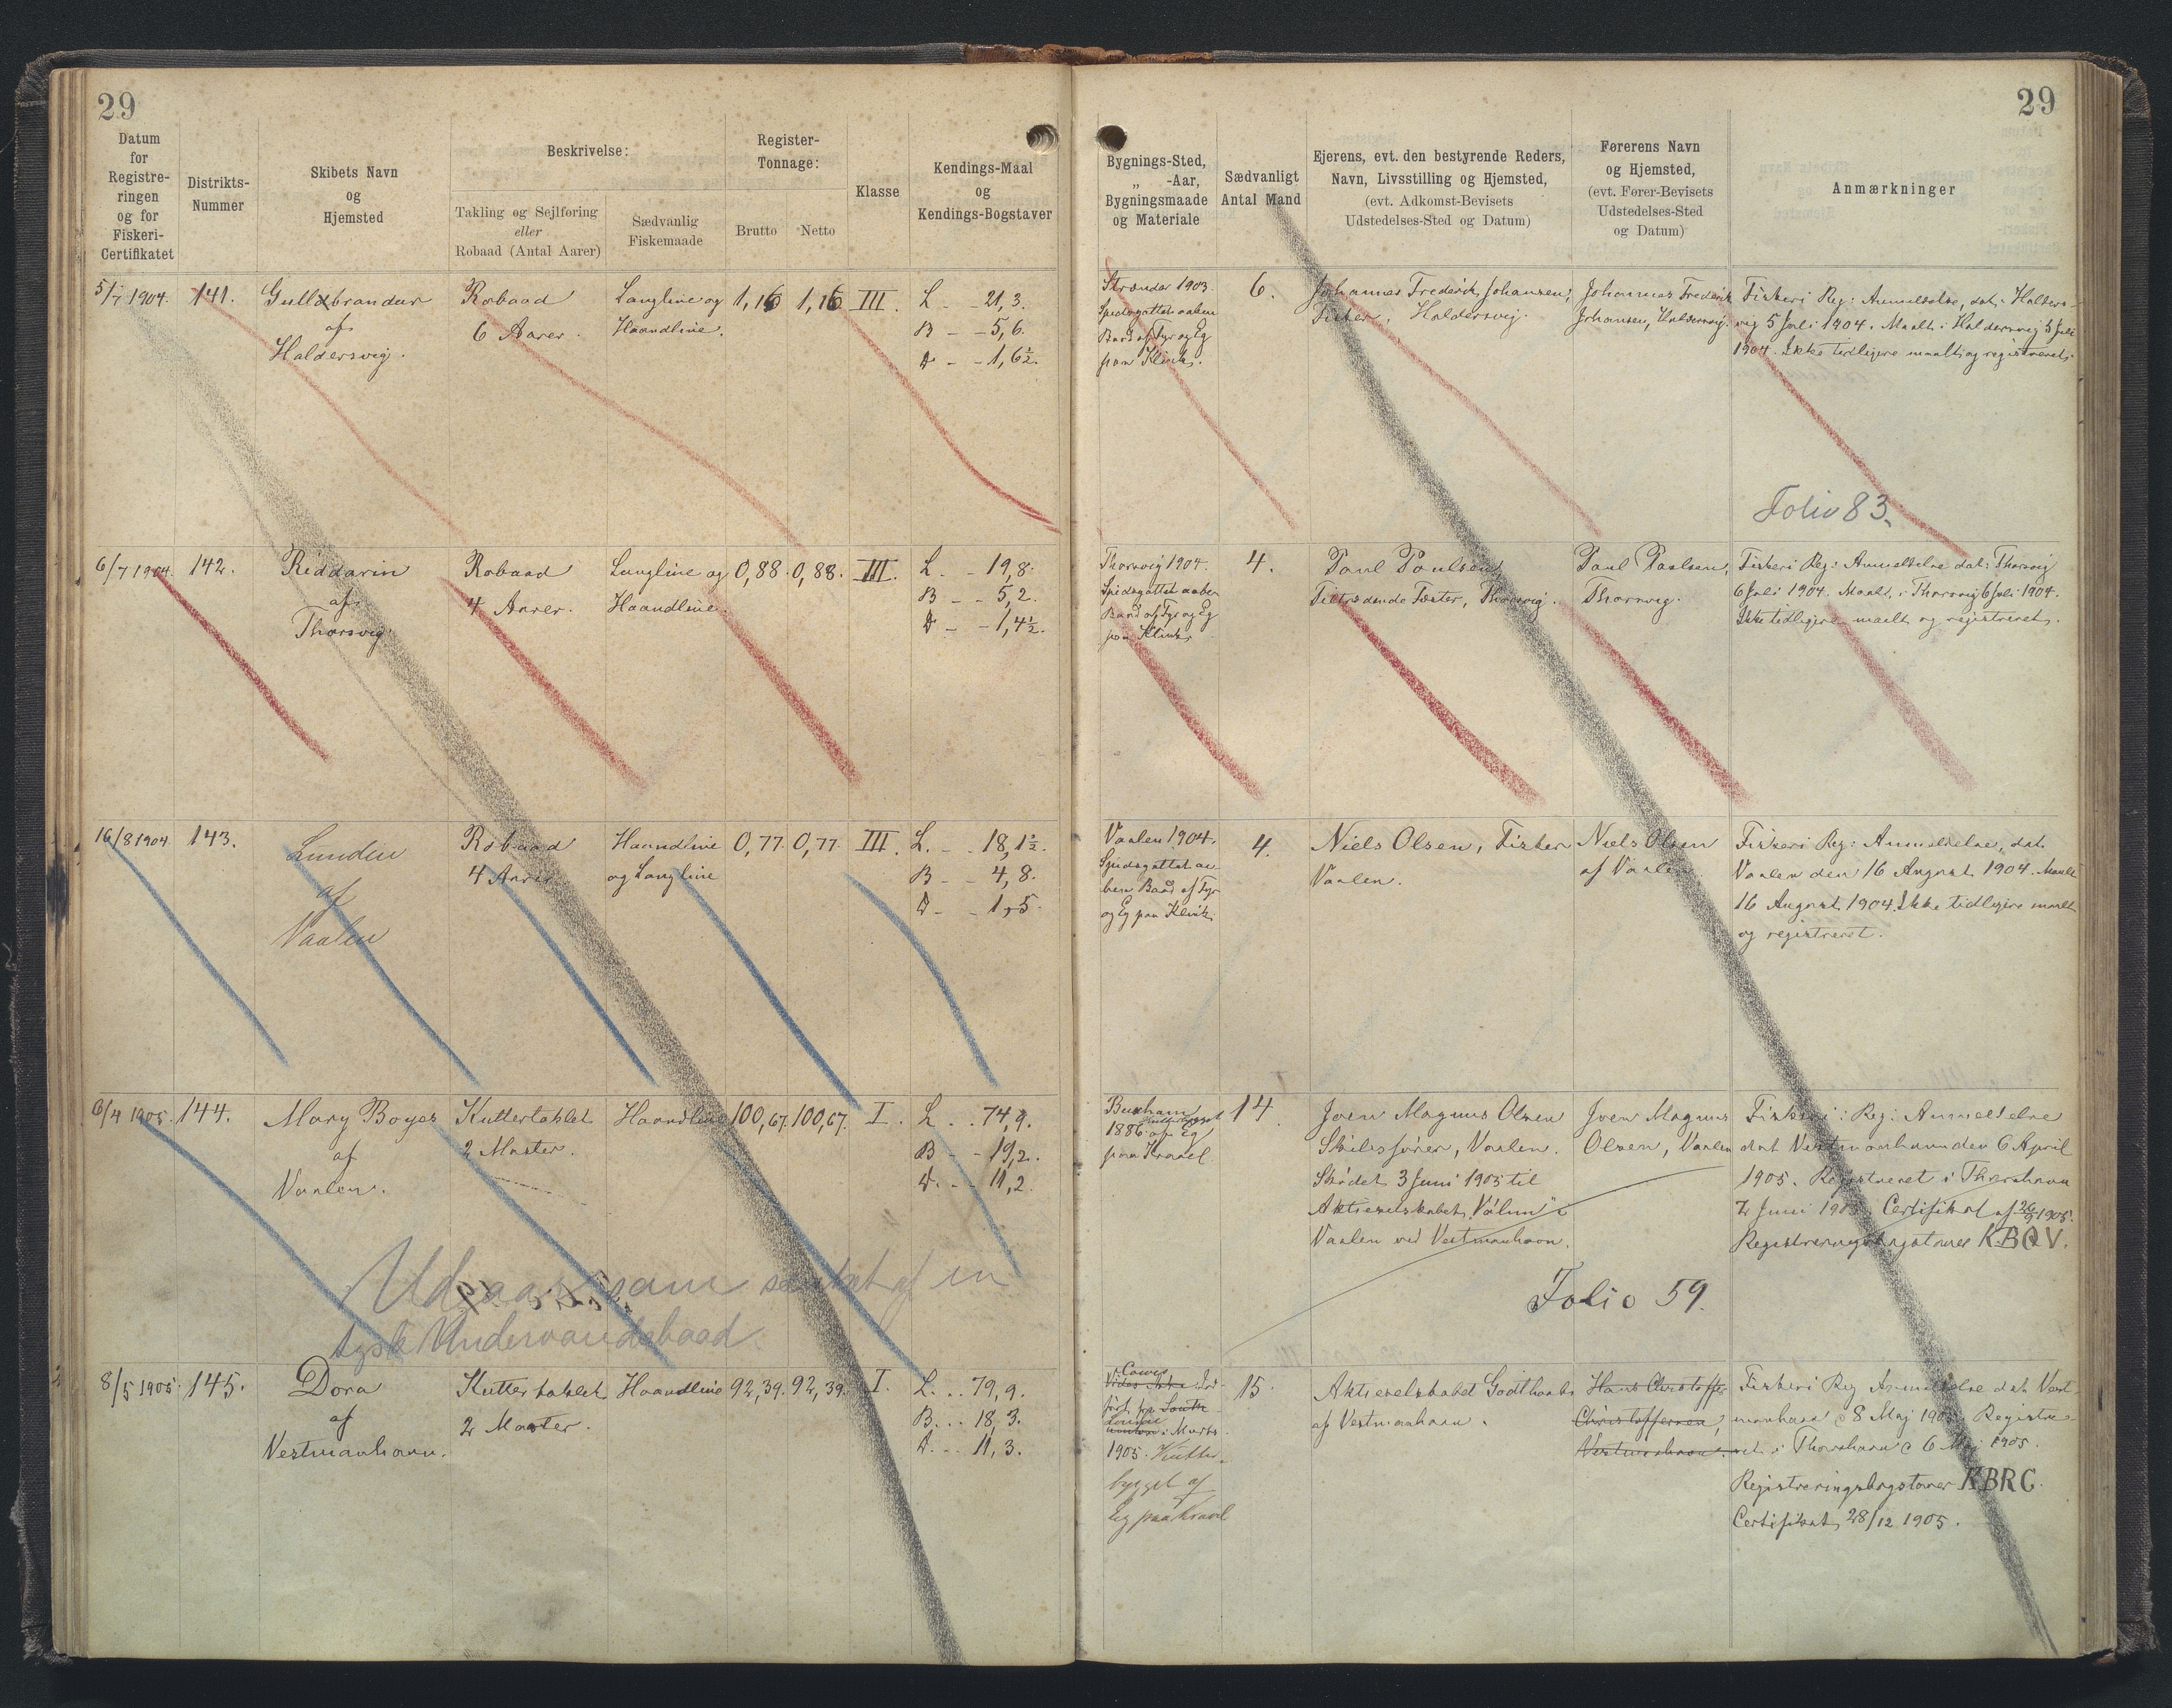 29
29
Datum
for
Registre-
ringen
og for
Fiskeri-
Certifikatet
Distrikts-
Nummer
Skibets Navn
og
Hjemsted
Beskrivelse:
Takling og Sejlføring
eller
Robaad (Antal Aarer)
Sædvanlig
Fiskemaade
Register-
Tonnage:
Brutto
Netto
Klasse
Kendings-Maal
og
Kendings-Bogstaver
Bygnings-Sted,
„ -Aar,
Bygningsmaade
og Materiale
Sædvanligt
Antal Mand
Ejerens, evt. den bestyrende Reders,
Navn, Livsstilling og Hjemsted,
(evt. Adkomst-Bevisets
Udstedelses-Sted og Datum)
Førerens Navn
og Hjemsted,
(evt. Fører-Bevisets
Udstedelses-Sted
og Datum)
Anmærkninger
5/7 1904.
141.
Gullbrandur
af
Haldersvig.
Robaad
6 Aarer.
Langline og
Haandline.
1,16
1,16
III.
L - - 21,3.
B - - 5,6.
D - - 1,6½.
Strender 1903.
Spidsgattet aaben
Baad af Fyr og Eg
paa Klink.
6.
Johannes Frederik Johansen,
Fisker, Haldersvig.
Johannes Frederik
Johansen, Haldersvig.
Fiskeri Reg: Anmeldelse, dat. Halders-
vig 5 Juli 1904. Maalt i Haldersvig 5 Juli
1904. Ikke tidligere maalt og registreret.
Folio 83.
6/7 1904.
142.
Riddarin
af
Thorsvig.
Robaad
4 Aarer.
Langline og
Haandline.
0,88.
0,88.
III.
L. - 19,8.
B - - 5,2.
D - - 1,4½.
Thorsvig 1904.
Spidsgattet aaben
Baad af Fyr og Eg
paa Klink.
4.
Paul Poulsen,
Tiltrædende Fæster, Thorsvig.
Paul Poulsen,
Thorsvig.
Fiskeri Reg: Anmeldelse dat. Thorsvig
6 Juli 1904. Maalt i Thorsvig 6 Juli 1904.
Ikke tidligere maalt og registreret.
16/8 1904
143.
Lunden
af
Vaalen
Robaad
4 Aarer
Haandline
og Langline
0,77.
0,77.
III.
L. - - 18,1½.
B - - 4,8.
D - - 1,5.
Vaalen 1904.
Spidsgattet aa-
ben Baad af Fyr
og Eg paa Klink.
4.
Niels Olsen, Fisker
Vaalen.
Niels Olsen
af Vaalen
Fiskeri Reg: Anmeldelse, dat.
Vaalen den 16 August 1904. Maalt
16 August 1904. Ikke tidligere maalt
og registreret.
6/4 1905.
144.
Mary Boyes
af
Vaalen.
Kuttertaklet
2 Master.
Haandline
100,67.
100,67.
I.
L . . 74,9.
B - - 19,2.
D. - - 11,2.
1886 af Eg
paa Kravel
14
Joen Magnus Olsen
Skibsfører, Vaalen.
Skødet 3 Juni 1905 til
Aktieselskabet „Válin” i
Vaalen ved Vestmanhavn.
Joen Magnus
Olsen, Vaalen
Fiskeri: Reg: Anmeldelse
dat Vestmanhavn den 6 April
1905. Registreret i Thorshavn
2 Juni 1905. Certifikat af 26/9 1905.
Registreringsbogstaver KBQV.
Folio 59.
Udgaar som sænket af en
tysk Undervandsbaad.
8/5 1905.
145.
Dora
af
Vestmanhavn.
Kuttertaklet
2 Master.
Haandline
92,39.
92,39.
I.
L. . . 79,9.
B. . . 18,3.
D. . . 11,3.
Cowes
ført fra South
i Marts
1905. Kutter
bygget af
Eg paa Kravel
15.
Aktieselskabet Godthaab
af Vestmanhavn.
Hans Christoffer
Christoffersen,
Vestmanhavn.
Fiskeri Reg Anmeldelse dat. Vest-
manhavn d 8 Maj 1905. Registre-
ret i Thorshavn d 6 Maj 1905.
Registreringsbogstaver KBRC.
Certifikat 28/12 1905.